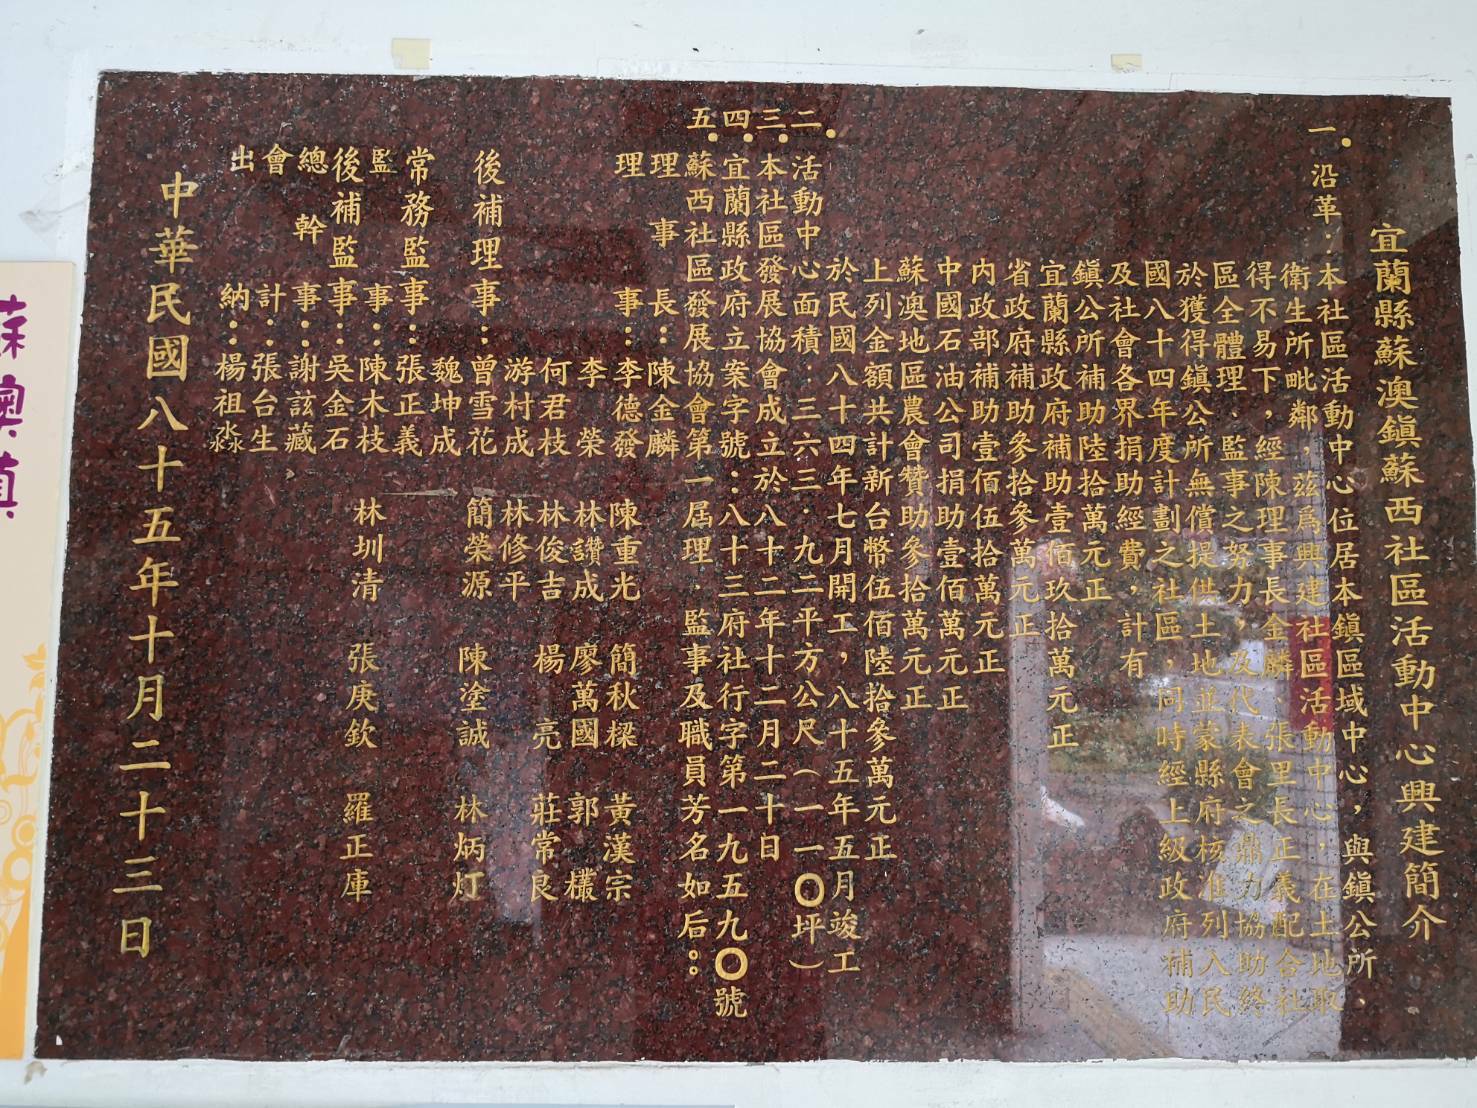 宜蘭縣蘇澳鎮蘇西社區活動中心興建簡介
一．沿革：本社區活動中心位居本鎮區域中心，與鎮公所、
衛生所毗鄰，茲為興建社區活動中心，在土地取
得不易下，經陳理事長金麟、張里長正義配合社
區全體理、監事之努力，及代表會之鼎力協助終
於獲得鎮公所無償提供土地並蒙縣府核准列入民
國八十四年度計劃之社區，同時經上級政府補助
及社會各界捐助經費，計有
鎮公所補助陸拾萬元正
宜蘭縣政府補助壹佰玖拾萬元正
省政府補助參拾參萬元正
內政部補助壹佰伍拾萬元正
中國石油公司捐助壹佰萬元正
蘇澳地區農會贊助參拾萬元正
上列金額共計新台幣伍佰陸拾參萬元正
於民國八十四年七月開工，八十五年五月竣工
二．活動中心面積：三六三．九二平方公尺（一一〇坪）
三．本社區發展協會成立於八十二年十二月二十日
四．宜蘭縣政府立案字號：八十三府社行字第一九五九〇號
五．蘇西社區發展協會第一屆理．監事及職員芳名如后：
理事長：陳金麟
理事：李德發 陳重光 簡秋樑 黃漢宗
李榮 林讚成 廖萬國 郭欉
何君枝 林俊吉 楊亮 莊常良
游村成 林修平
後補理事：曾雪花 簡榮源 陳塗誠 林炳灯
魏坤成
常務監事：張正義
監事：陳木枝 林圳清 張庚欽 羅正庫
後補監事：吳金石
總幹事：謝誩藏
會計：張台生
出納：楊祖淼
中華民國八十五年十月二十三日
蘇澳鎮